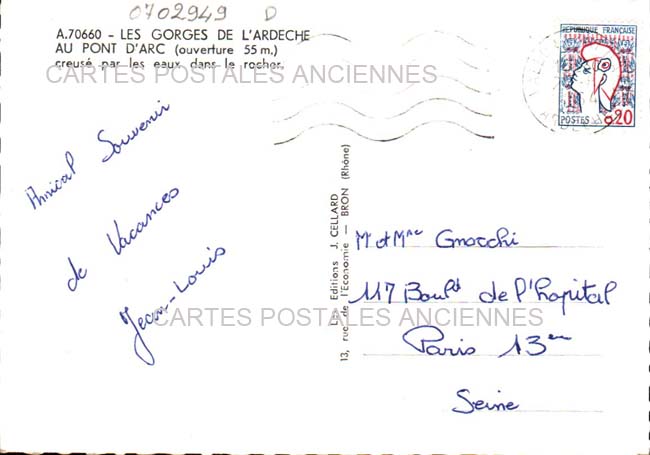 0702949 D
A.70660 - LES GORGES DE L'ARDECHE
AU PONT D'ARC (ouverture 55 m.)
creusé par les eaux dans le rocher.
CARTES POSTALES ANCIENNES
REPUBLIQUE FRANÇAISE
POSTES 0,20
Amical Souvenir
de Vacances
Jean-Louis
Les Editions J. CELLARD
13, rue de l'Economie - BRON (Rhône)
Mr et Mme Gnocchi
117 Bould de l'hopital
CARTES POSTALES ANCIENNES
Paris 13em
Seine